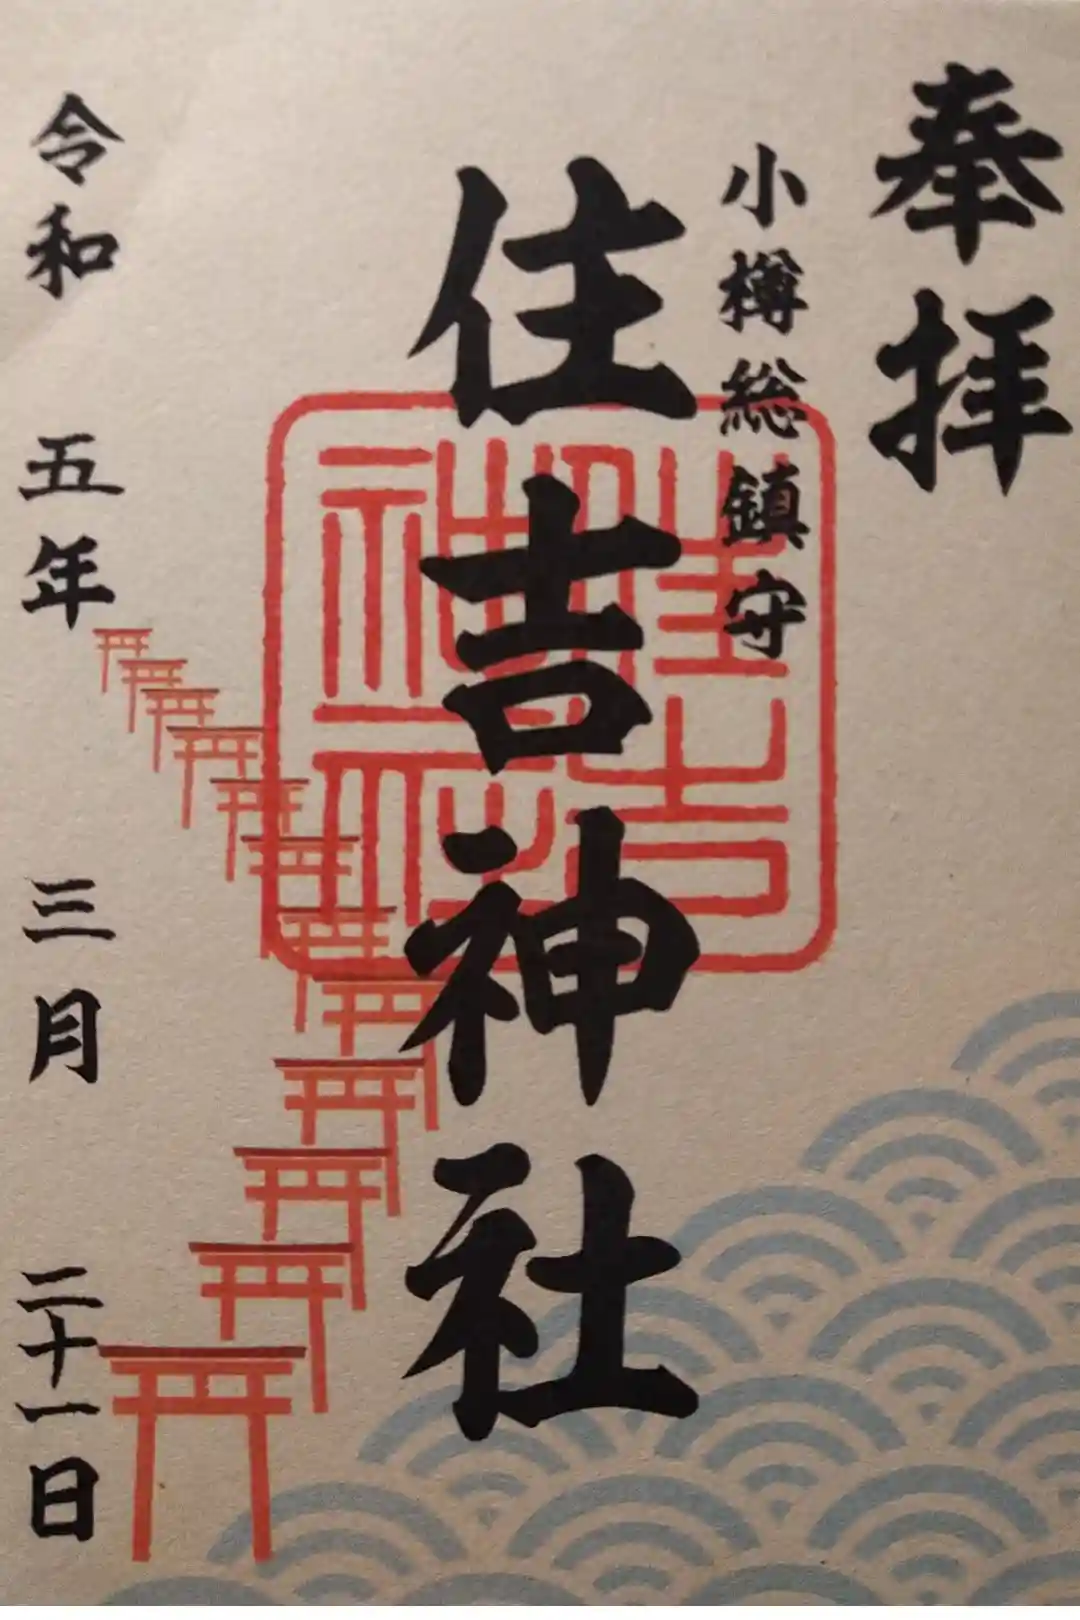 奉拝
小樽総鎮守
住吉神社
住吉神社
令和 五年 三月 二十一日